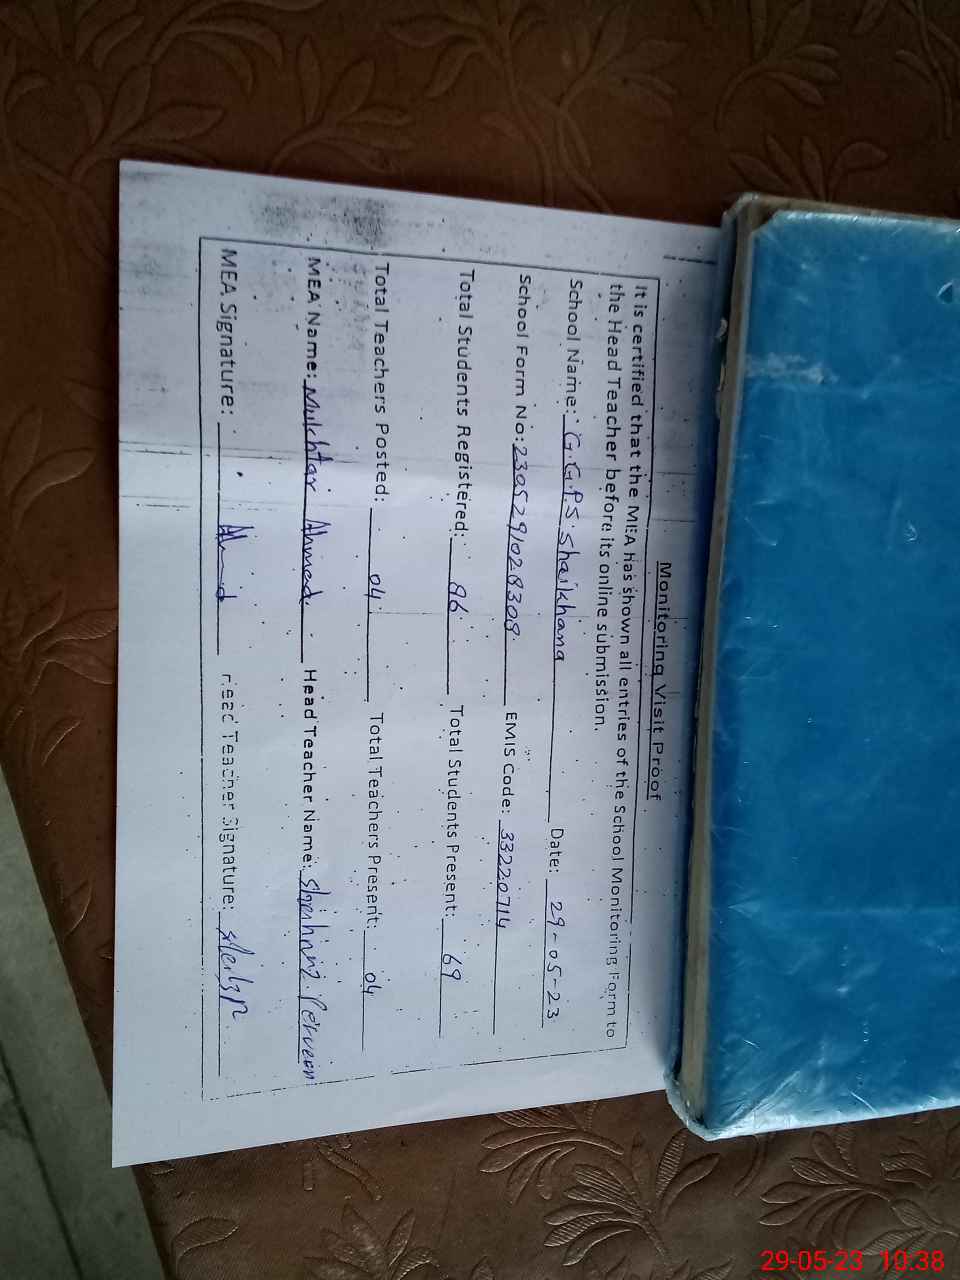 Monitoring Visit Proof
It is certified that the MEA has shown all entries of the School Monitoring Form to
the Head Teacher before its online submission.
School Name: G.G.P.S Shaikhana Date: 29-05-23
School Form No: 2305291028308 EMIS Code: 33220714
Total Students Registered: 86 Total Students Present: 69
Total Teachers Posted: 04 Total Teachers Present: 04
MEA Name: Mukhtar Ahmed. Head Teacher Name: Perveen
MEA Signature: Head Teacher Signature:
29-05-23 10:38